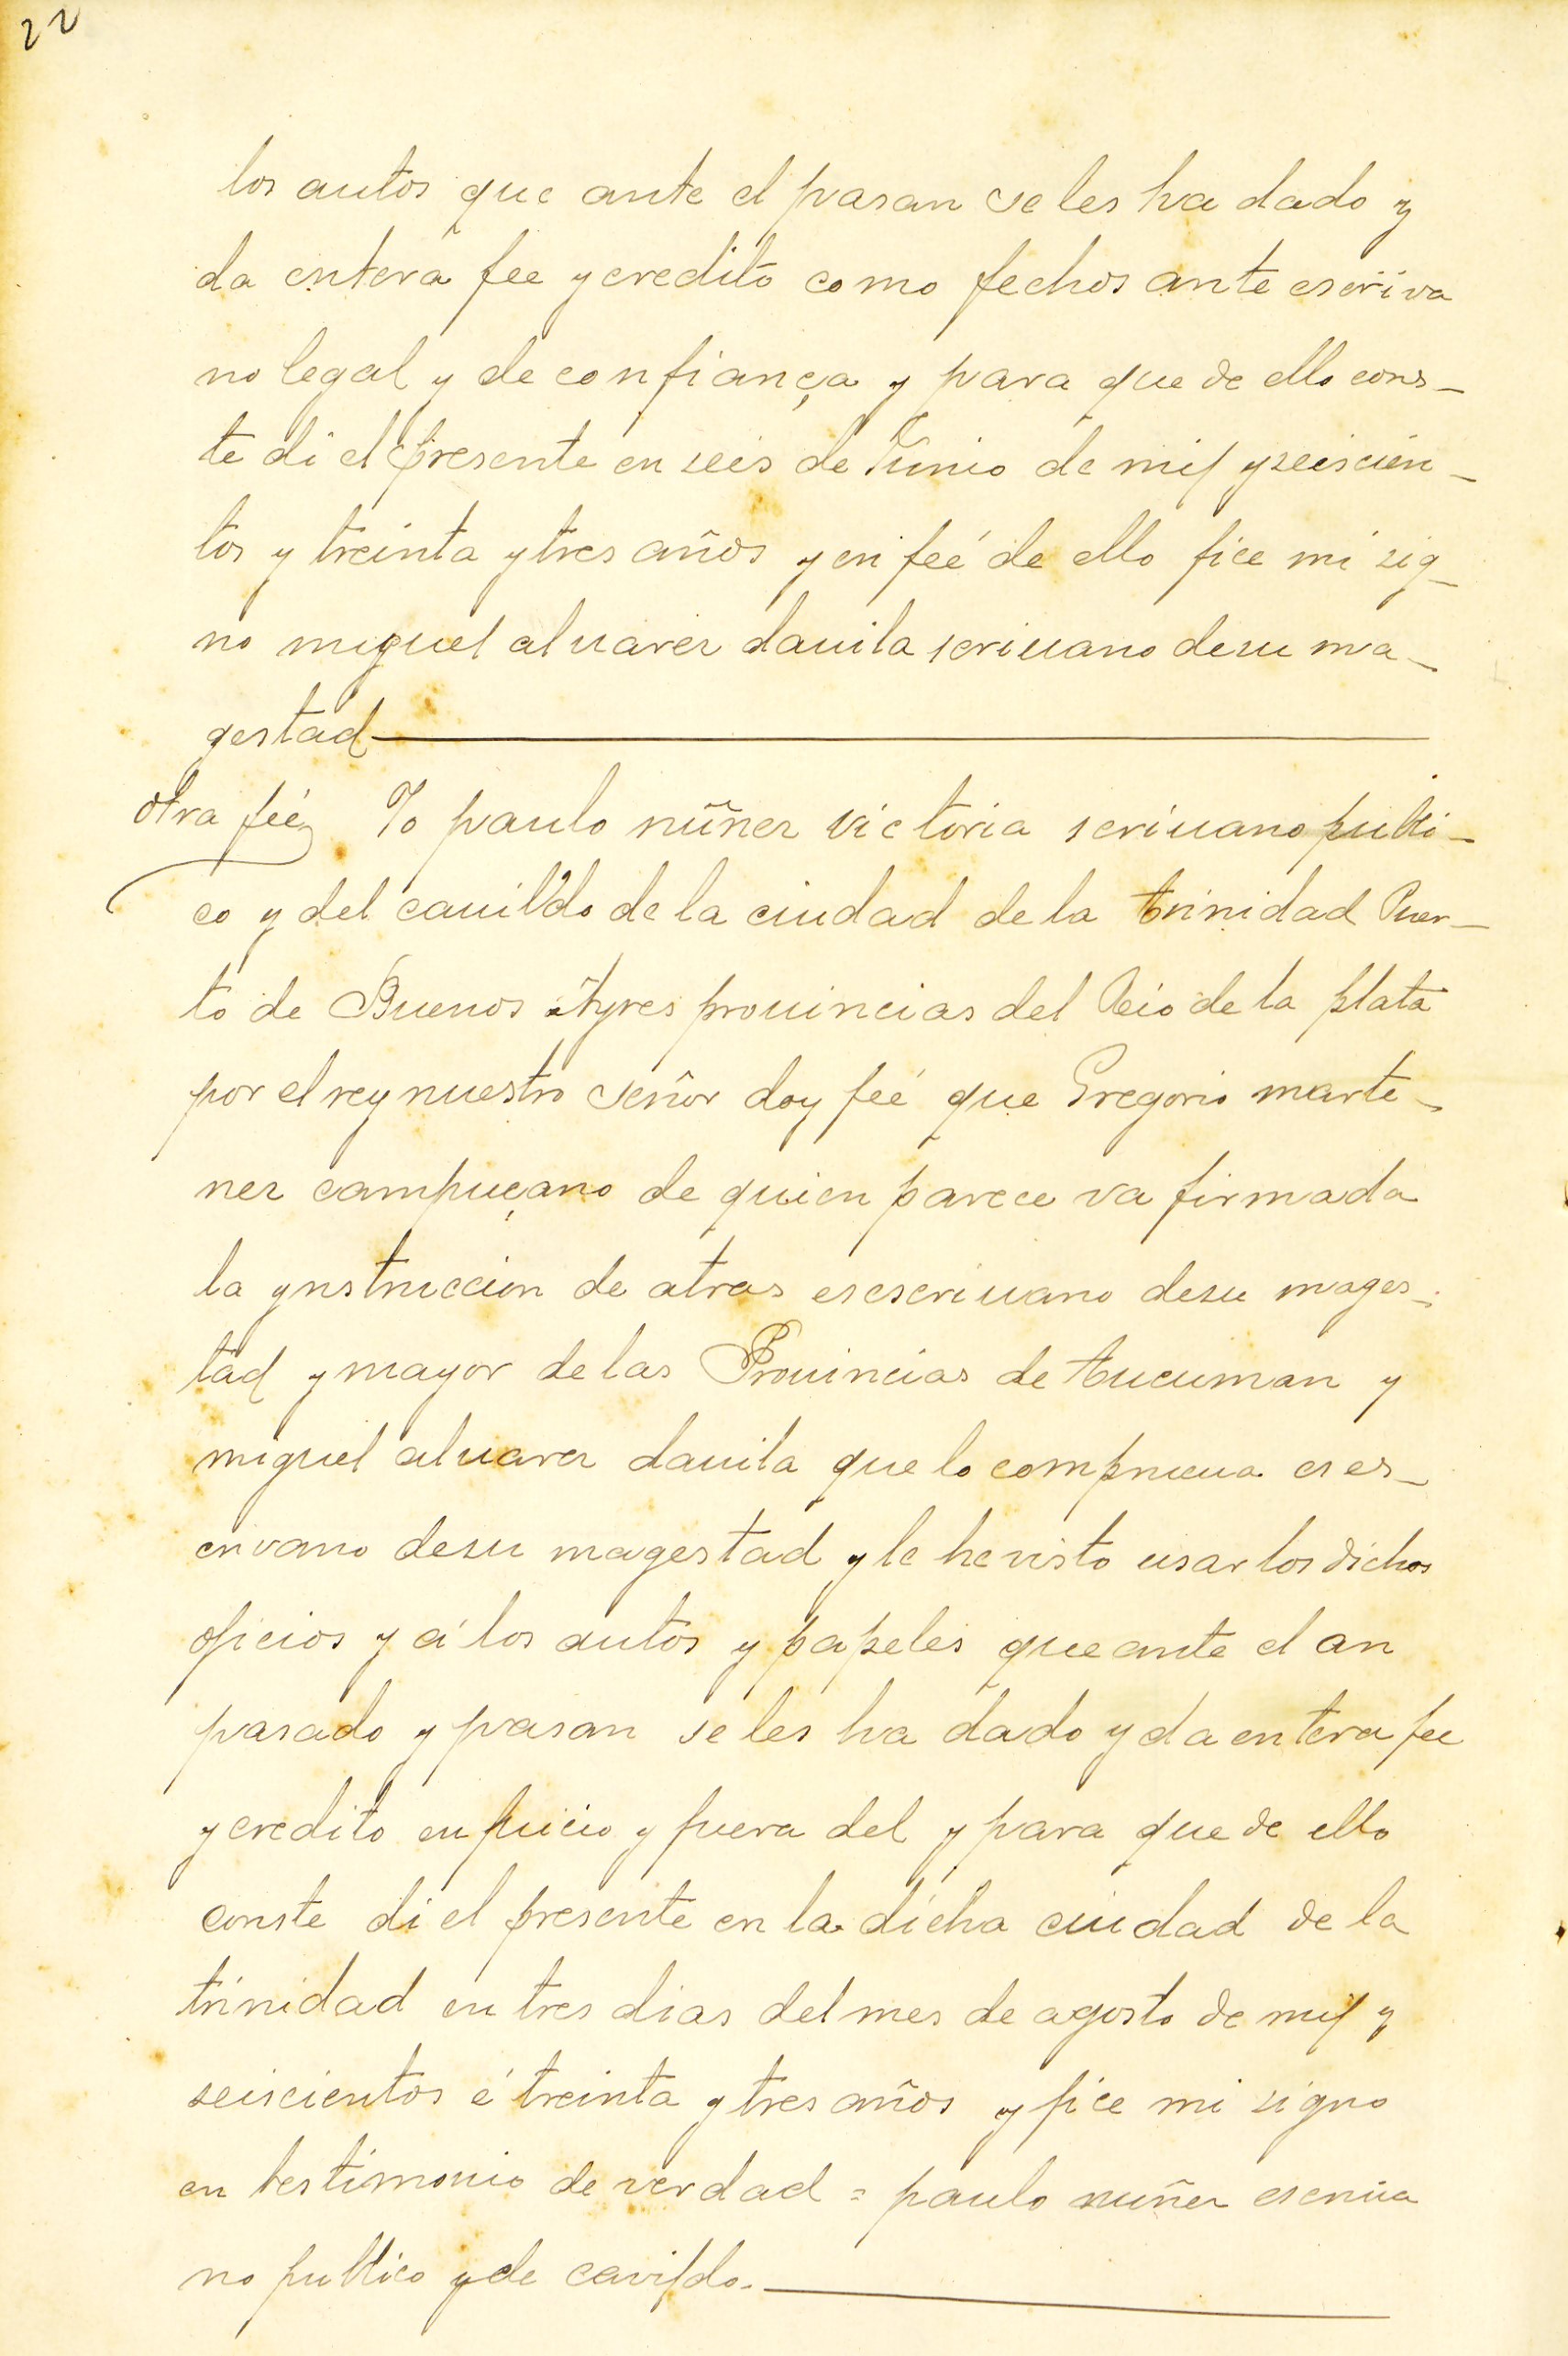 22
los autos que ante el pasan se les ha dado y
da entera fee y credito como fechos ante escriva
no legal y de confiança y para que de ello cons-
te di el presente en seis de Junio de mil y seiscien-
tos y treinta y tres años y en feé de ello fice mi sig-
no miguel aluarez dauila scriuano de su ma-
gestad
otra feé Yo paulo nuñez victoria scriuano publi-
co y del cauildo de la ciudad de la trinidad Puer-
to de Buenos Ayres prouincias del Rio de la plata
por el rey nuestro señor doy feé que Gregorio marte-
nez campuçano de quien parece va firmada
la ynstruccion de atras es escriuano de su mages-
tad y mayor de las Prouincias de tucuman y
miguel aluarez dauila que lo comprueua es es-
crivano de su magestad y le he visto usar los dichos
oficios y á los autos y papeles que ante el an
pasado y pasan se les ha dado y da entera fee
y credito en juicio y fuera del y para que de ello
conste di el presente en la dicha ciudad de la
trinidad en tres dias del mes de agosto de mil y
seiscientos é treinta y tres años y fice mi signo
en testimonio de verdad = paulo nuñez escriua
no publico y de cavildo.